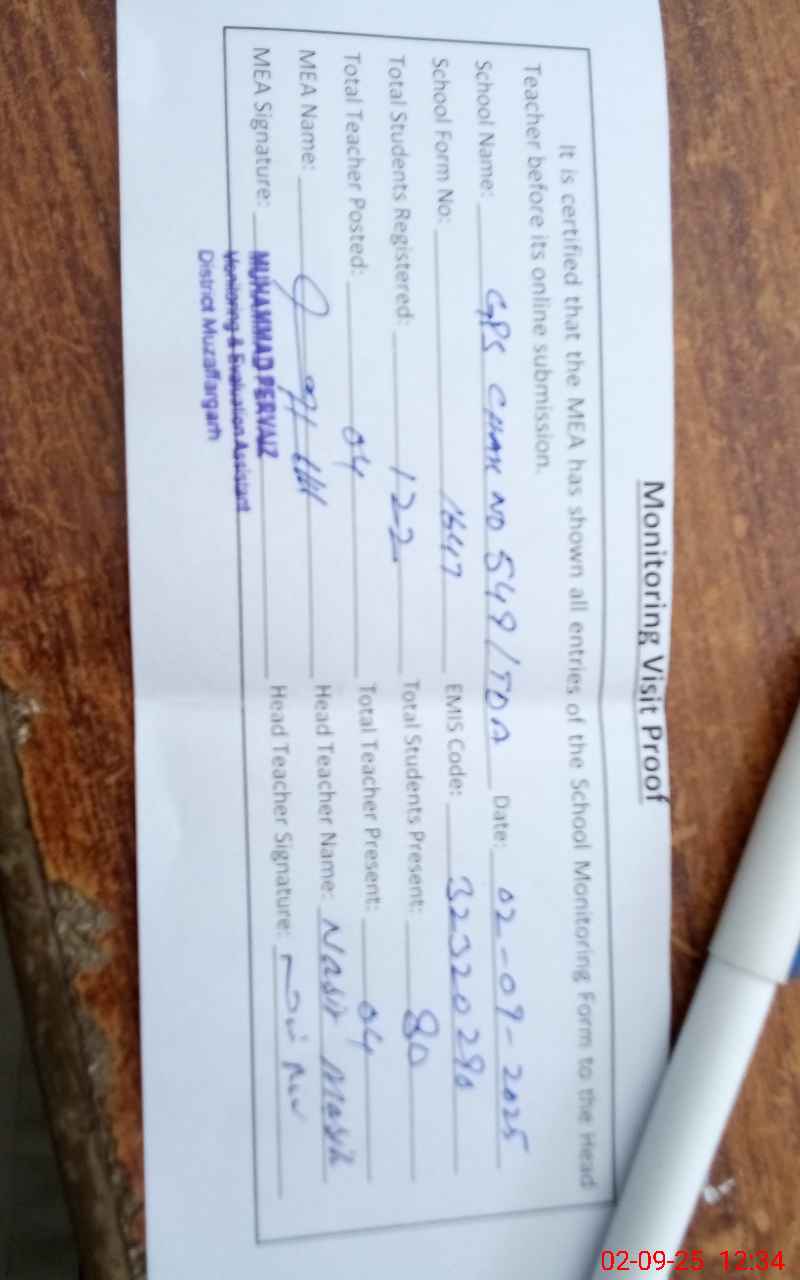 Monitoring Visit Proof
It is certified that the MEA has shown all entries of the School Monitoring Form to the Head
Teacher before its online submission.
School Name: GPS CHAK NO 549/TDA Date: 02-09-2025
School Form No: 1647 EMIS Code: 32320290
Total Students Registered: 122 Total Students Present: 80
Total Teacher Posted: 04 Total Teacher Present: 04
MEA Name: Head Teacher Name: Nasir
MEA Signature: Head Teacher Signature:
MUHAMMAD PERVAIZ
Monitoring & Evaluation Assistant
District Muzaffargarh
02-09-25 12:34